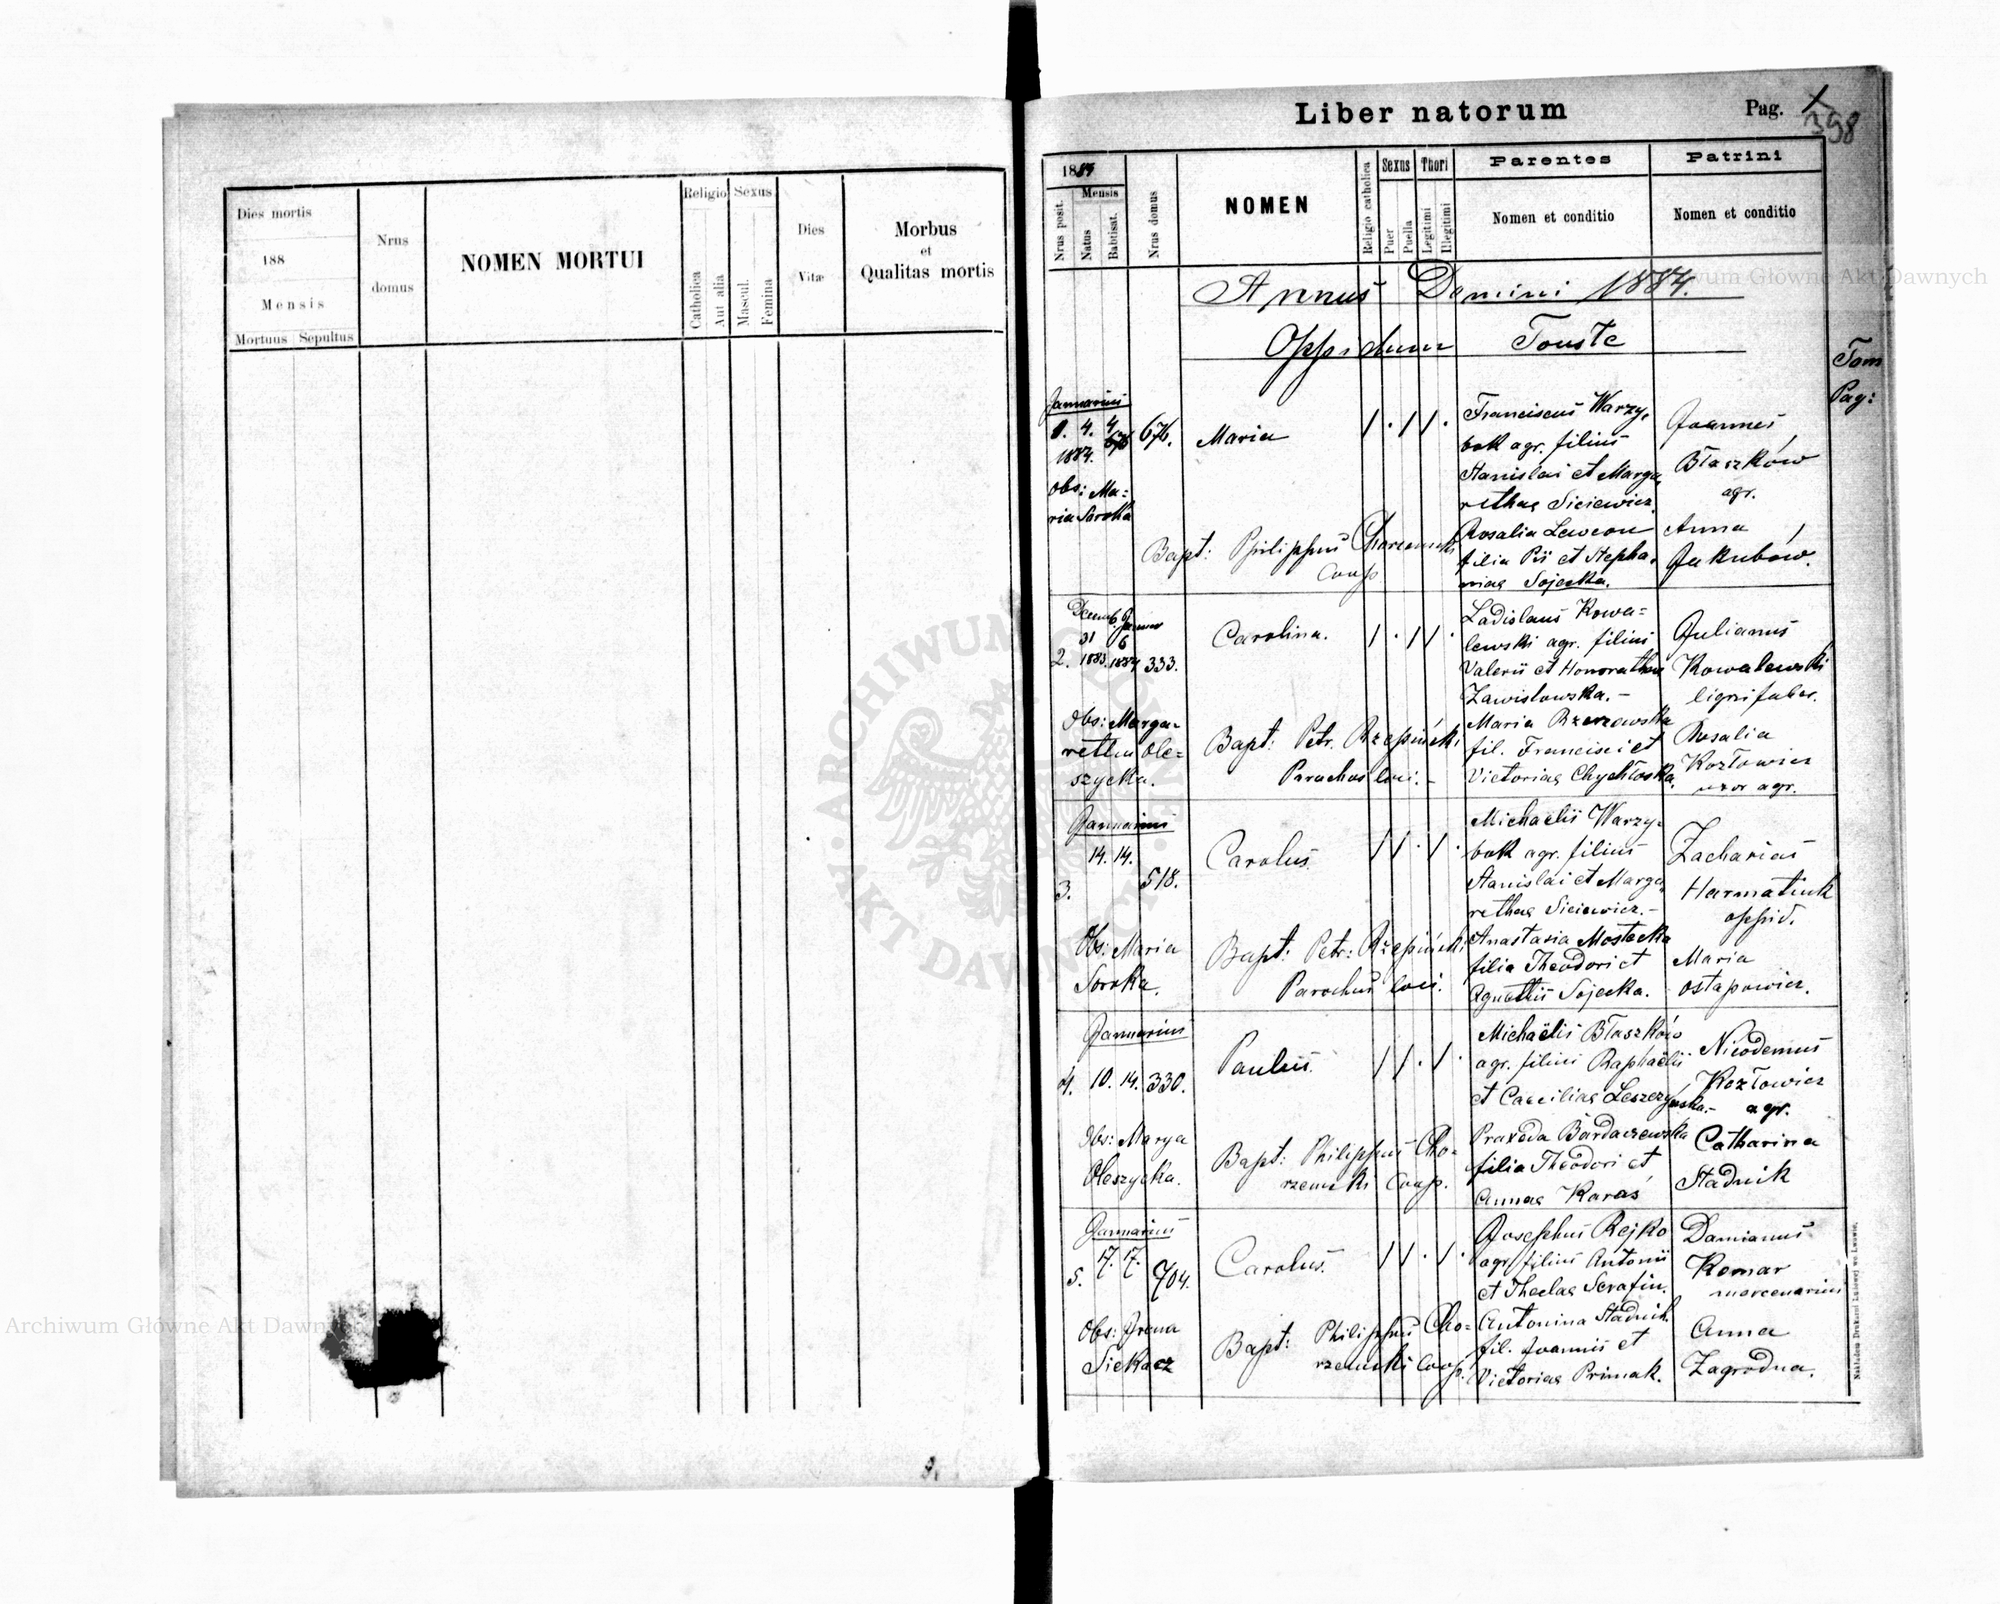 Dies mortis
188
Mensis
Mortuus Sepultus
Nrus
domus
NOMEN MORTUI
Religio Sexus
Catholica
Aut alia
Mascul.
Femina
Dies
Vitæ
Morbus
et
Qualitas mortis
Liber natorum
Pag. 1
398
1884
Mensis
Nrus posit.
Natus
Babtisat.
Nrus domus
NOMEN
Religio catholica
Sexus
Puer
Puella
Thori
Legitimi
Illegitimi
Parentes
Nomen et conditio
Patrini
Nomen et conditio
Annus Domini 1884.
Oppidum Touste
Tom
Pag:
Januarius
1. 4. 4
1884.
676.
Maria
Obs: Ma=
ria Soroka
Bapt: Philippus
Coop
Franciscus Warzy-
bok agr. filius
Stanislai et Marga
rethae Siciewicz.
Rosalia Lewcon
filia Pii et Stepha-
niae Sojecka.
Joannes
Błaszków
agr.
Anna
Jakubów.
31 6
2. 1883. 1884 333.
Carolina.
Obs: Marga-
retha Ole=
szycka.
Bapt: Petr. Rzepiński
Parochus loci.-
Ladislaus Kowa=
lewski agr. filius
Valerii et Honorathae
Zawisłowska.-
Maria Rzerzowska
fil. Francisci et
Victoriae Chychłoska.
Julianus
Kowalewski
lignifaber.
Rosalia
Kozłowicz
uxor agr.
Januarius
14. 14.
3. 518.
Carolus.
Obs: Maria
Soroka.
Bapt: Petr: Rzepiński
Parochus loci.
Michaelis Warzy-
bok agr. filius
Stanislai et Marga
rethae Siciewicz.-
Anastasia Mostecka
filia Theodori et
Agnetis Sojecka.
Zacharias
Harmatiuk
oppid.
Maria
Ostapowicz.
Januarius
4. 10. 14. 330.
Paulus.
Obs: Marya
Oleszycka.
Bapt: Philippus Cho-
rzemski Coop.
Michaëlis Błaszków
agr. filius Raphaëlis
et Caeciliae Leszczyńska.-
Praxeda Bardaczewska
filia Theodori et
Annae Karaś
Nicodemus
Kozłowicz
agr.
Catharina
Stadnik
Januarius
17. 17.
5. 704.
Carolus.
Obs: Irena
Siekacz
Bapt: Philippus Cho=
rzemski Coop.
Josephus Rejko
agr. filius Antonii
et Theclae Serafin.
Antonina Stadnik
fil. Joannis et
Victoriae Primak.
Damianus
Komar
mercenarius
Anna
Zagrodna.
Nakładem Drukarni Ludowej we Lwowie.
Archiwum Główne Akt Dawnych
Archiwum Główne Akt Dawnych
ARCHIWUM GŁÓWNE
AKT DAWNYCH